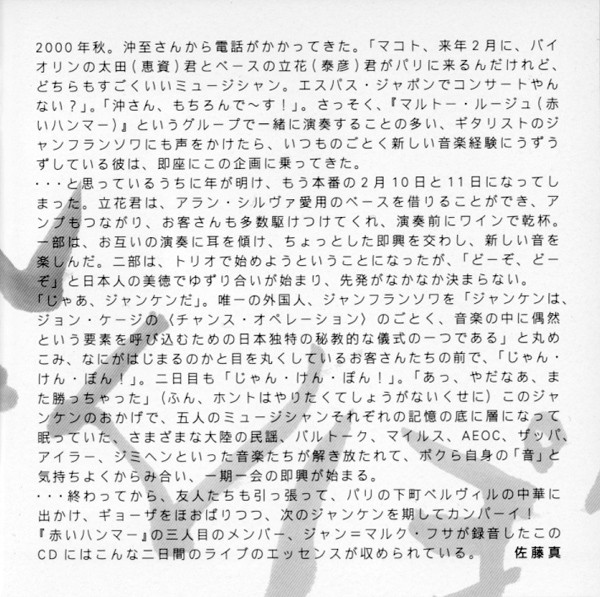 2000年秋。沖至さんから電話がかかってきた。「マコト、来年2月に、バイ
オリンの太田(恵資)君とベースの立花(泰彦)君がパリに来るんだけれど、
どちらもすごくいいミュージシャン。エスパス・ジャポンでコンサートやん
ない?」。「沖さん、もちろんで〜す!」。さっそく、『マルトー・ルージュ(赤
いハンマー)』というグループで一緒に演奏することの多い、ギタリストのジ
ャンフランソワにも声をかけたら、いつものごとく新しい音楽経験にうずう
ずしている彼は、即座にこの企画に乗ってきた。
・・・と思っているうちに年が明け、もう本番の2月10日と11日になってし
まった。立花君は、アラン・シルヴァ愛用のベースを借りることができ、ア
ンプもつながり、お客さんも多数駆けつけてくれ、演奏前にワインで乾杯。
一部は、お互いの演奏に耳を傾け、ちょっとした即興を交わし、新しい音を
楽しんだ。二部は、トリオで始めようということになったが、「どーぞ、どー
ぞ」と日本人の美徳でゆずり合いが始まり、先発がなかなか決まらない。
「じゃあ、ジャンケンだ」。唯一の外国人、ジャンフランソワを「ジャンケンは、
ジョン・ケージの〈チャンス・オペレーション〉のごとく、音楽の中に偶然
という要素を呼び込むための日本独特の秘教的な儀式の一つである」と丸め
こみ、なにがはじまるのかと目を丸くしているお客さんたちの前で、「じゃん・
けん・ぽん!」。二日目も「じゃん・けん・ぽん!」。「あっ、やだなあ、ま
た勝っちゃった」(ふん、ホントはやりたくてしょうがないくせに) このジャ
ンケンのおかげで、五人のミュージシャンそれぞれの記憶の底に層になって
眠っていた、さまざまな大陸の民謡、バルトーク、マイルス、AEOC、ザッパ、
アイラー、ジミヘンといった音楽たちが解き放たれて、ボクら自身の「音」と
気持ちよくからみ合い、一期一会の即興が始まる。
・・・終わってから、友人たちも引っ張って、パリの下町ベルヴィルの中華に
出かけ、ギョーザをほおばりつつ、次のジャンケンを期してカンバーイ!
『赤いハンマー』の三人目のメンバー、ジャン=マルク・フサが録音したこの
CDにはこんな二日間のライブのエッセンスが収められている。 佐藤真